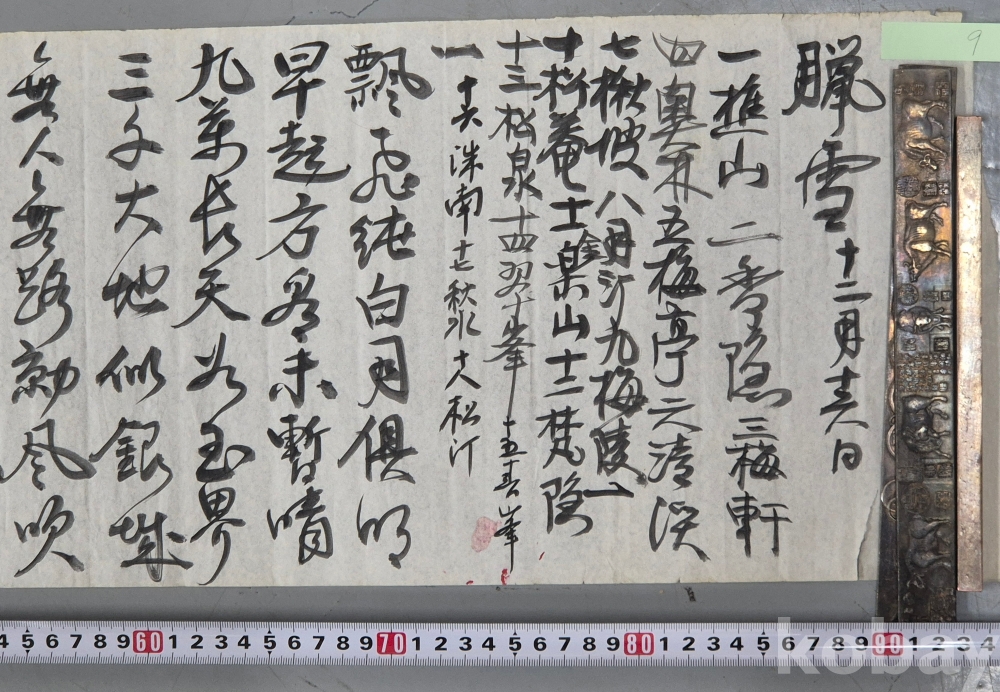 臘雪 十二月十六日
一樵山 二香隱 三梅軒
四奧來 五梅亭 六清溪
七楸坡 八錦汀 九梅陵
十松菴 十一樂山 十二梵隱
十三松泉 十四翠峯 十五春峯
十六洙南 十七秋水 十八松汀
飄飛純白月俱明
早起方看未暫晴
九萬長天如玉界
三千大地似銀城
無人無路動風吹
9
4 5 6 7 8 9 60 1 2 3 4 5 6 7 8 9 70 1 2 3 4 5 6 7 8 9 80 1 2 3 4 5 6 7 8 9 90 1 2 3 4
kobay